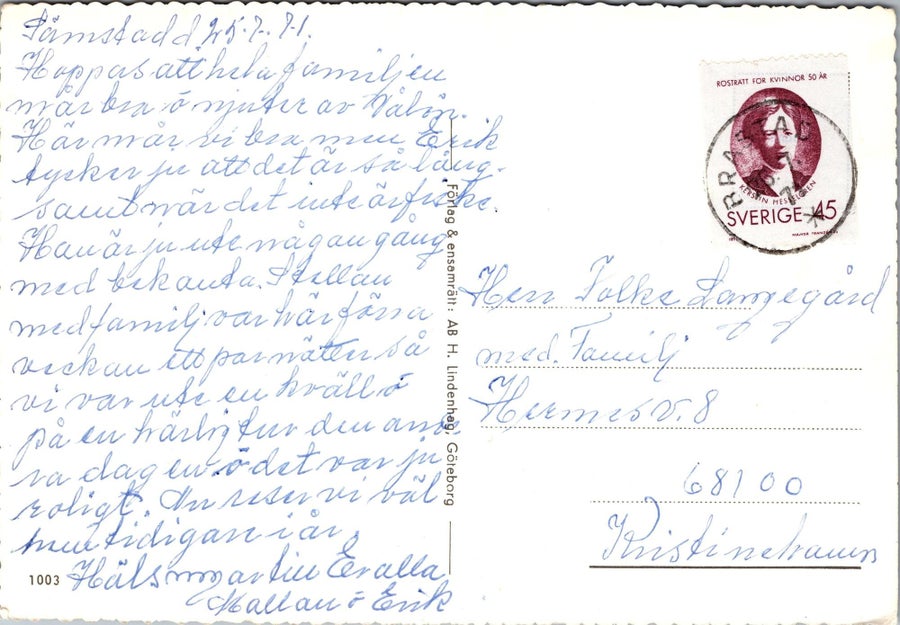 Tåmstad d 25.7.71.
Hoppas att hela familjen
mår bra ö njuter av Vålön.
Här mår vi bra men Erik
tycker ju att det är så lång-
samt när det inte är fiske.
Han är ju ute någon gång
med bekanta. Stellan
med familj var här förra
veckan ett par nätter så
vi var ute en kväll ö
på en härlig tur den and-
ra dagen ö det var ju
roligt. Nu reser vi väl
hem tidigare i år.
Hälsningar till Er alla
ö Erik
1003
Förlag & ensamrätt: AB H. Lindenhag, Göteborg
RÖSTRÄTT FÖR KVINNOR 50 ÅR
KERSTIN HESSELGREN
SVERIGE 45
Herr Folke Langegård
med. Familj
Hermesv. 8
68100
Kristinehamn